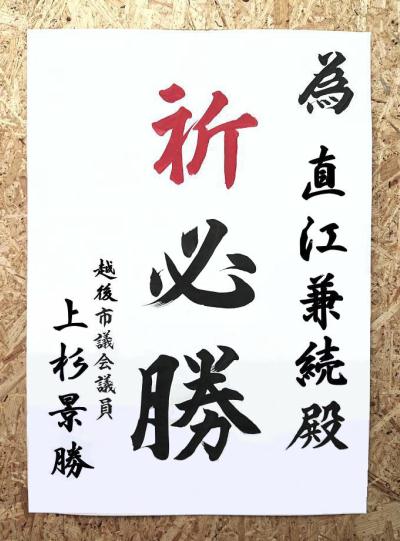 為 直江兼続殿
祈必勝
越後市議会議員
上杉景勝